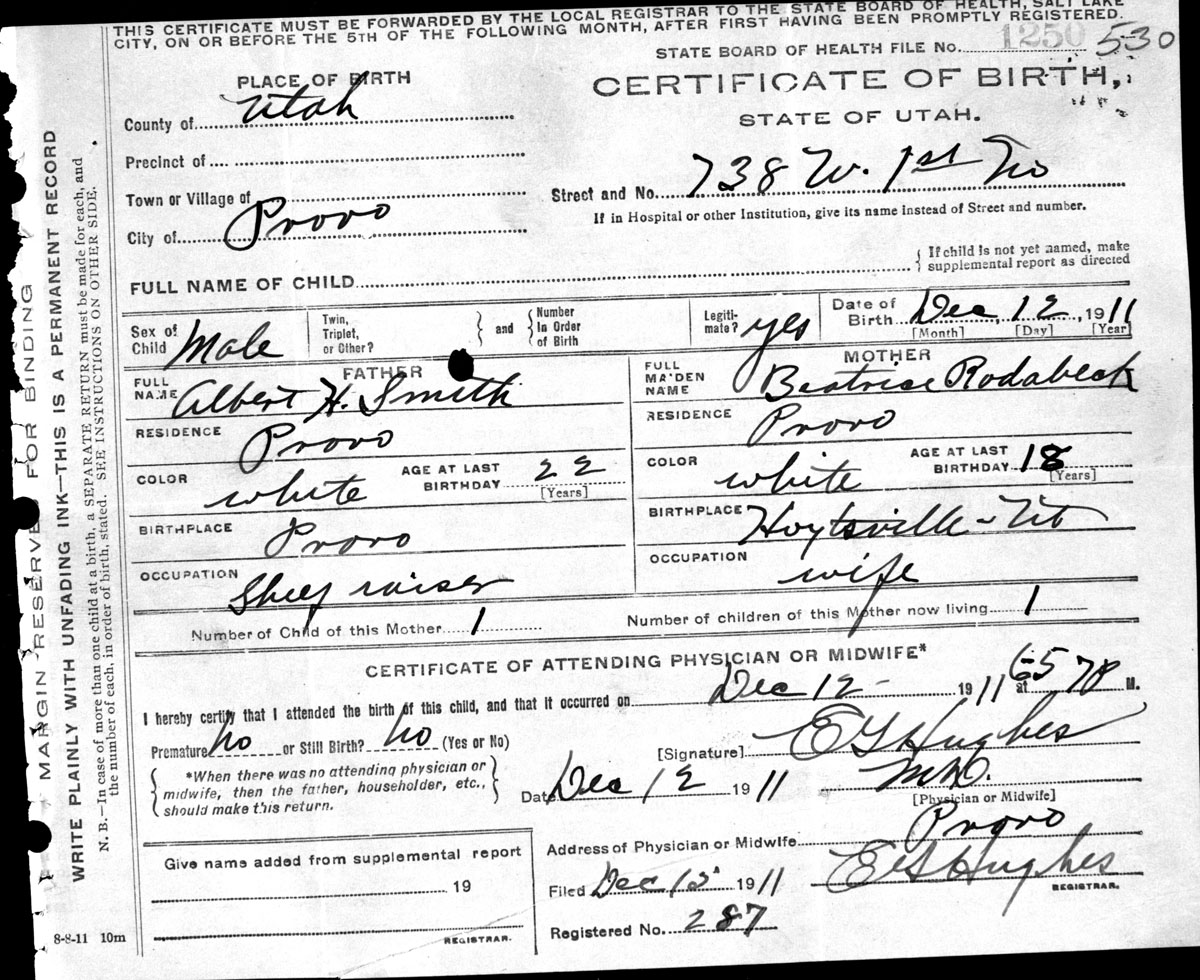 THIS CERTIFICATE MUST BE FORWARDED BY THE LOCAL REGISTRAR TO THE STATE BOARD OF HEALTH, SALT LAKE
CITY, ON OR BEFORE THE 5TH OF THE FOLLOWING MONTH, AFTER FIRST HAVING BEEN PROMPTLY REGISTERED.
STATE BOARD OF HEALTH FILE No. 1250 530
PLACE OF BIRTH
CERTIFICATE OF BIRTH,
County of Utah
STATE OF UTAH.
Precinct of
Town or Village of
Street and No. 738 W. 1st No
If in Hospital or other Institution, give its name instead of Street and number.
City of Provo
FULL NAME OF CHILD
If child is not yet named, make
supplemental report as directed
Sex of Child Male
Twin, Triplet, or Other?
and
Number In Order of Birth
Legiti-mate? yes
Date of Birth Dec 12, 1911
[Month] [Day] [Year]
FATHER
FULL NAME Albert H. Smith
RESIDENCE Provo
COLOR white
AGE AT LAST BIRTHDAY 22
[Years]
BIRTHPLACE Provo
OCCUPATION Sheep raiser
MOTHER
FULL MAIDEN NAME Beatrice Rodabeck
RESIDENCE Provo
COLOR white
AGE AT LAST BIRTHDAY 18
[Years]
BIRTHPLACE Hoytsville - Ut
OCCUPATION wife
Number of Child of this Mother 1
Number of children of this Mother now living 1
CERTIFICATE OF ATTENDING PHYSICIAN OR MIDWIFE*
I hereby certify that I attended the birth of this child, and that it occurred on Dec 12 - 1911 at M.
Premature No or Still Birth? No (Yes or No)
*When there was no attending physician or
midwife, then the father, householder, etc.,
should make this return.
[Signature] E G Hughes
M.D.
[Physician or Midwife]
Date Dec 12 1911
Address of Physician or Midwife Provo
Give name added from supplemental report
19
REGISTRAR.
Filed Dec 12 1911
E G Hughes
REGISTRAR.
Registered No. 287
8-8-11 10m
MARGIN RESERVED FOR BINDING
WRITE PLAINLY WITH UNFADING INK—THIS IS A PERMANENT RECORD
N. B.—In case of more than one child at a birth, a SEPARATE RETURN must be made for each, and
the number of each, in order of birth, stated. SEE INSTRUCTIONS ON OTHER SIDE.